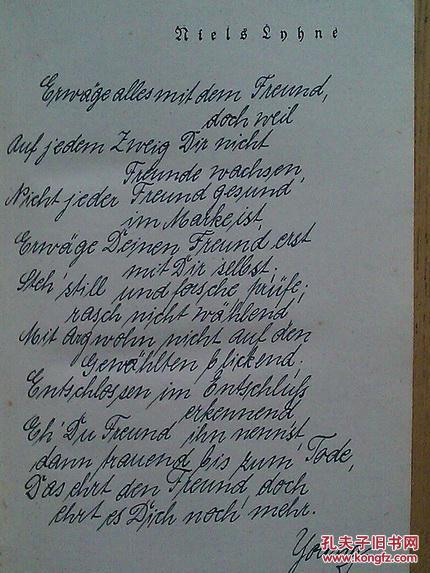 Niels Lyhne
Erwäge alles mit dem Freund,
doch weil
Auf jedem Zweig Dir nicht
Freunde wachsen,
Nicht jeder Freund gesund
im Marke ist,
Erwäge Deinen Freund erst
mit Dir selbst;
Steh' still und forsche, prüfe;
rasch nicht wählend,
Mit Argwohn nicht auf den
Gewählten blickend;
Entschlossen im Entschluß
erkennend,
Eh' Du Freund ihn nennst,
dann trauend bis zum Tode,
Das ehrt den Freund, doch
ehrt es Dich noch mehr.
孔夫子旧书网
kongfz.com